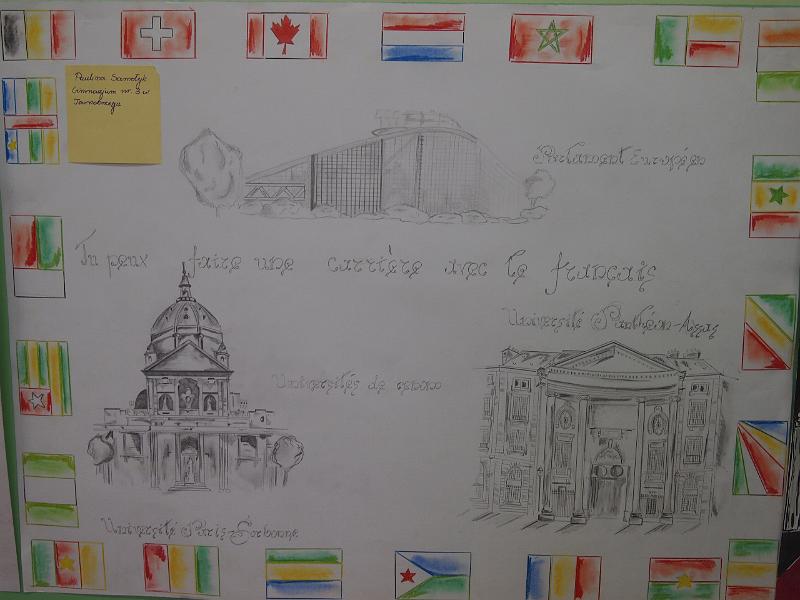 Paulina Samołyk
Gimnazjum nr. 3 w
Tarnobrzegu
Parlament Européen
Tu peux faire une carrière avec le français
Université Panthéon-Assas
Universités de
Université Paris-Sorbonne